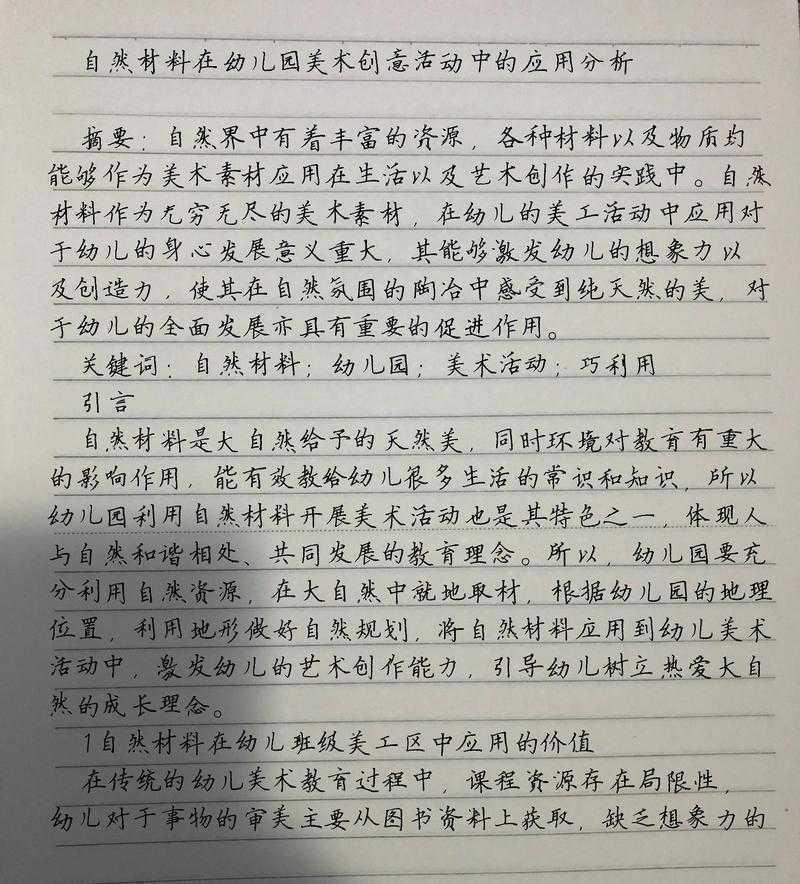 自然材料在幼儿园美术创意活动中的应用分析
摘要：自然界中有着丰富的资源，各种材料以及物质均
能够作为美术素材应用在生活以及艺术创作的实践中。自然
材料作为无穷无尽的美术素材，在幼儿的美工活动中应用对
于幼儿的身心发展意义重大，其能够激发幼儿的想象力以
及创造力，使其在自然氛围的陶冶中感受到纯天然的美，对
于幼儿的全面发展亦具有重要的促进作用。
关键词：自然材料；幼儿园；美术活动；巧利用
引言
自然材料是大自然给予的天然美，同时环境对教育有重大
的影响作用，能有效教给幼儿很多生活的常识和知识，所以
幼儿园利用自然材料开展美术活动也是其特色之一，体现人
与自然和谐相处、共同发展的教育理念。所以，幼儿园要充
分利用自然资源，在大自然中就地取材，根据幼儿园的地理
位置，利用地形做好自然规划，将自然材料应用到幼儿美术
活动中，激发幼儿的艺术创作能力，引导幼儿树立热爱大自
然的成长理念。
1自然材料在幼儿班级美工区中应用的价值
在传统的幼儿美术教育过程中，课程资源存在局限性，
幼儿对于事物的审美主要从图书资料上获取，缺乏想象力的